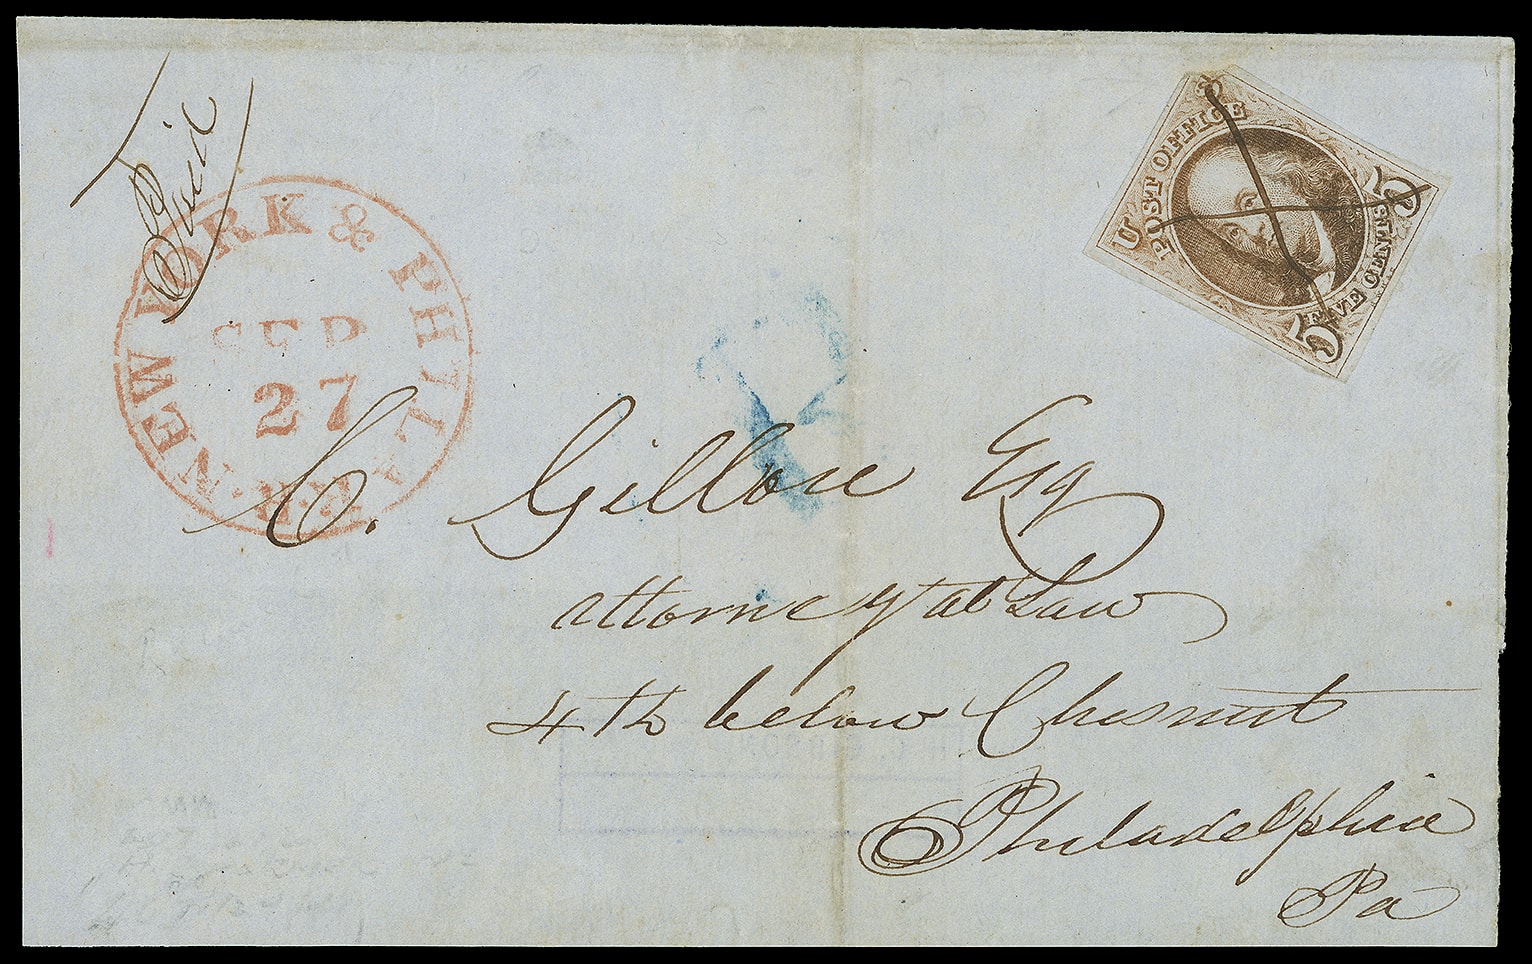 Paid
NEW YORK & PHILA. R.R.
SEP
27
U S
POST OFFICE
FIVE CENTS
5 5
C. Gillou Esq
attorney at Law
4th below Chesnut
Philadelphia
Pa